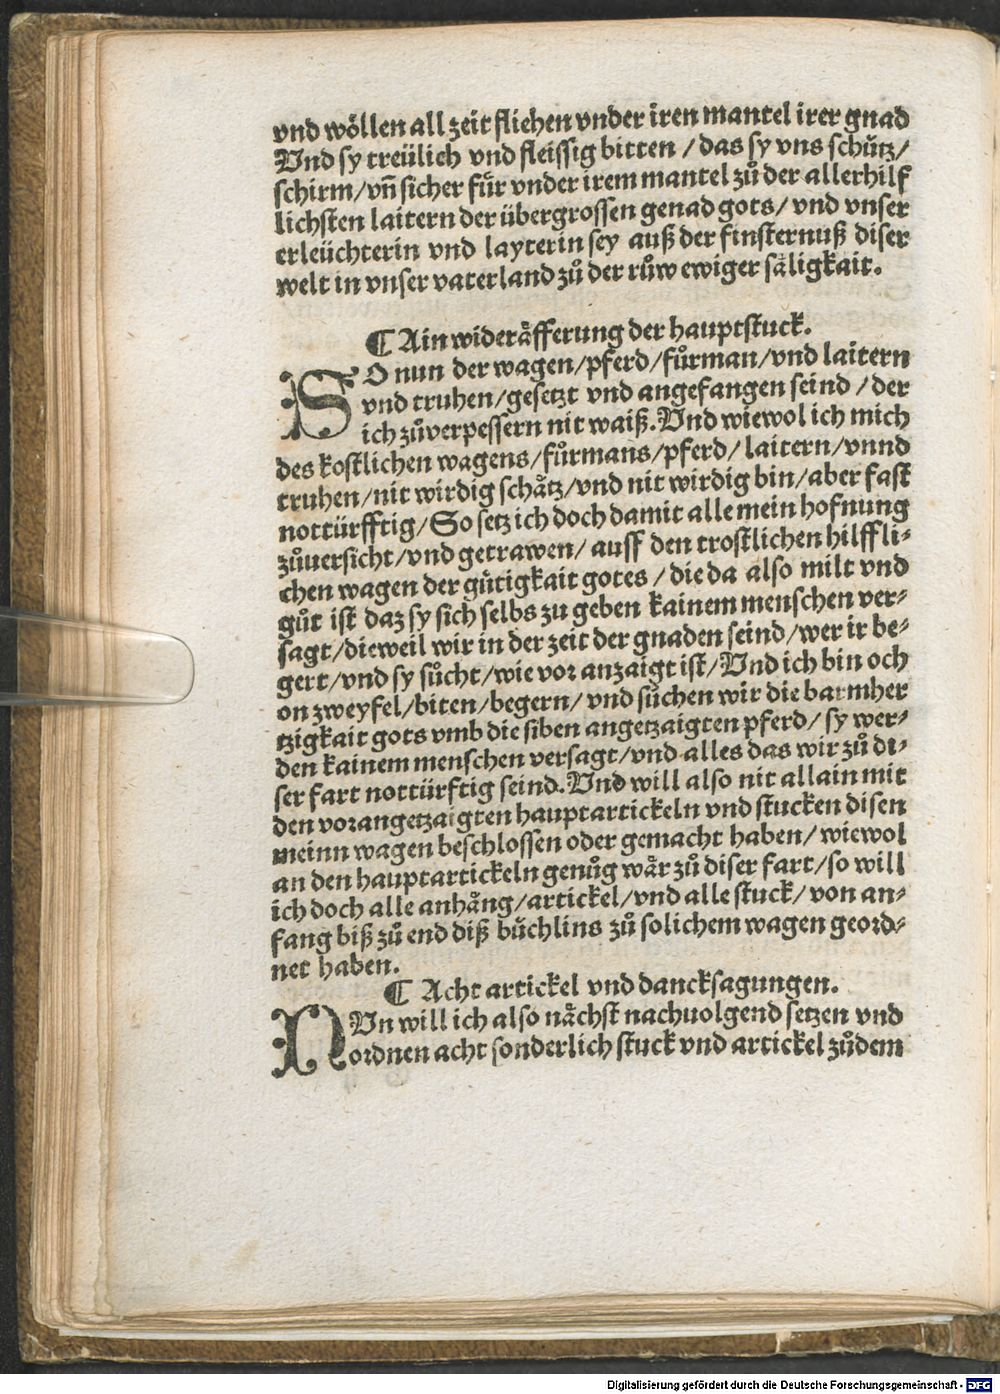 vnd wöllen all zeit fliehen vnder iren mantel irer gnad
Vnd sy treülich vnd fleissig bitten / das sy vns schütz/
schirm/vñ sicher für vnder irem mantel zů der allerhilf
lichsten laitern der übergrossen genad gots/ vnd vnser
erleüchterin vnd layterin sey auß der finsternuß diser
welt in vnser vaterland zů der růw ewiger säligkait.
¶ Ain wideräfferung der hauptstuck.
SO nun der wagen/pferd/fůrman/vnd laitern
vnd truhen/gesetzt vnd angefangen seind /der
ich zůverpessern nit waiß. Vnd wiewol ich mich
des kostlichen wagens/fůrmans/pferd/ laitern/vnnd
truhen/nit wirdig schätz/vnd nit wirdig bin/aber fast
nottürfftig/So setz ich doch damit alle mein hofnung
zůuersicht/vnd getrawen/ auff den trostlichen hilffli⸗
chen wagen der gütigkait gotes /die da also milt vnd
gůt ist daz sy sich selbs zu geben kainem menschen ver⸗
sagt/dieweil wir in der zeit der gnaden seind/wer ir be⸗
gert/vnd sy sůcht/wie vor anzaigt ist/Vnd ich bin och
on zweyfel/biten/begern/ vnd sůchen wir die barmher
tzigkait gots vmb die siben angetzaigten pferd/ sy wer⸗
den kainem menschen versagt/vnd alles das wir zů di⸗
ser fart nottürftig seind. Vnd will also nit allain mit
den vorangetzaigten hauptartickeln vnd stucken disen
meinn wagen beschlossen oder gemacht haben/ wiewol
an den hauptartickeln genůg wär zů diser fart/so will
ich doch alle anhäng/artickel/vnd alle stuck/ von an⸗
fang biß zů end diß büchlins zů solichem wagen geord⸗
net haben.
¶ Acht artickel vnd dancksagungen.
NVn will ich also nächst nachuolgend setzen vnd
ordnen acht sonderlich stuck vnd artickel zůdem
Digitalisierung gefördert durch die Deutsche Forschungsgemeinschaft - DFG